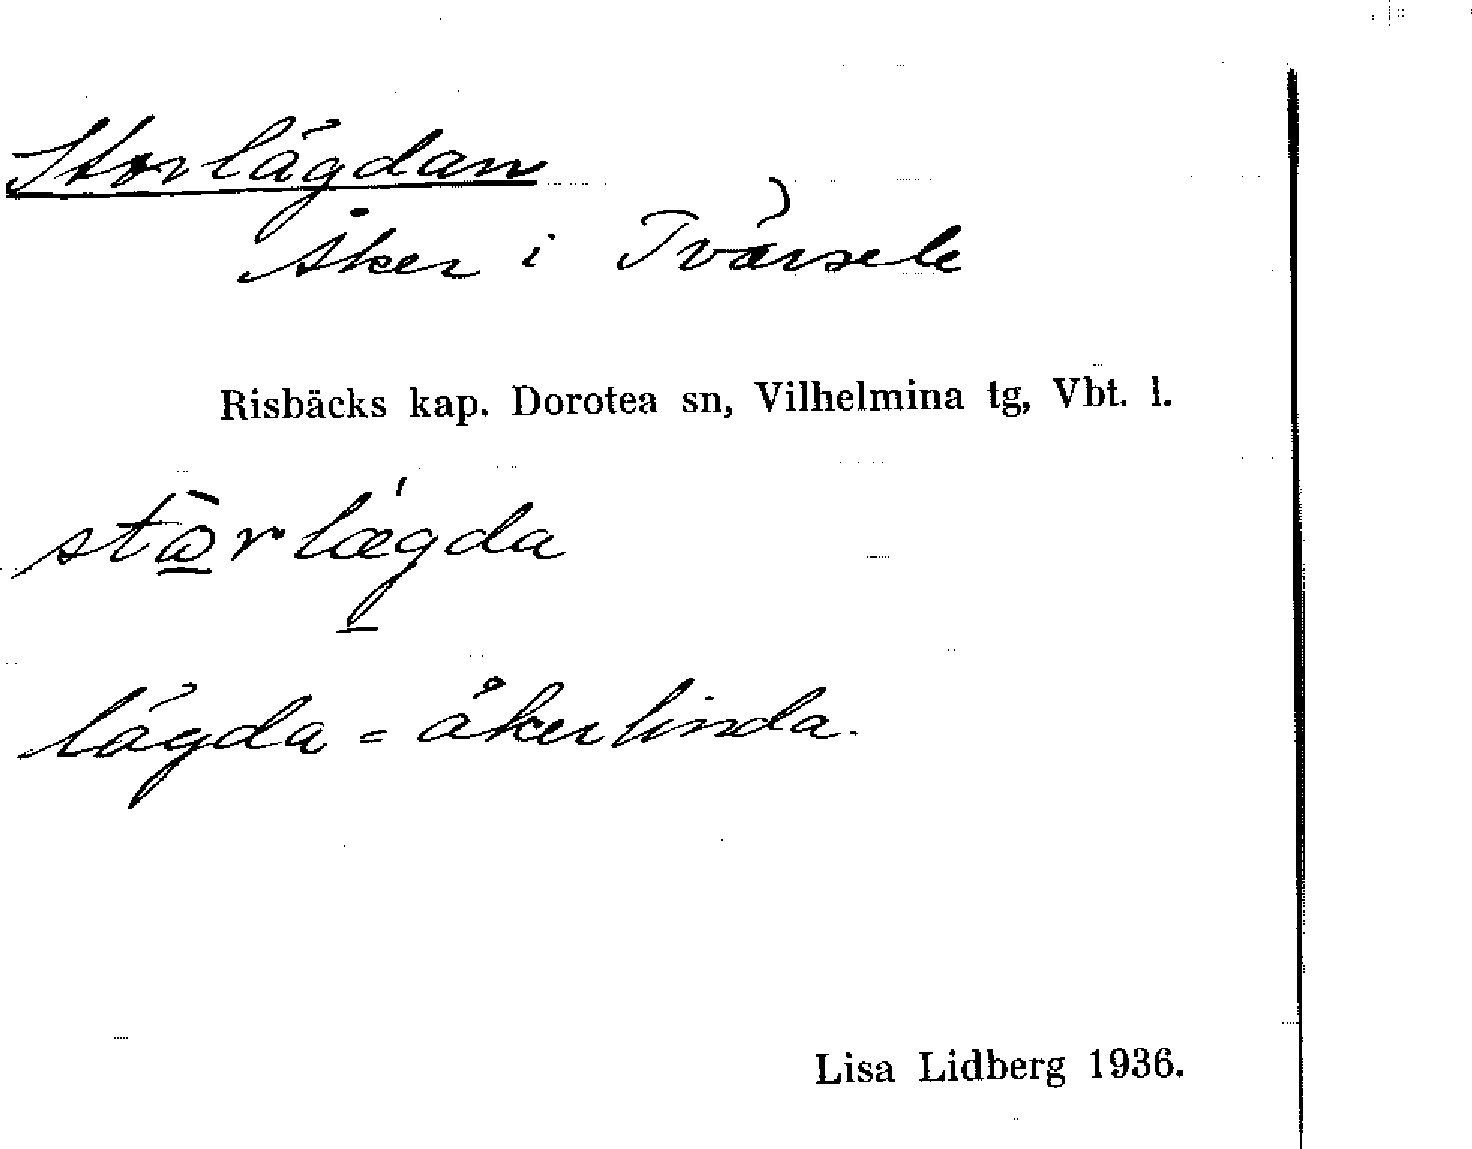 Storlägdan
Åker i Tvärsele
Risbäcks kap. Dorotea sn, Vilhelmina tg, Vbt. l.
stὼ̲rlǽgda
lägda = åkerlinda.
Lisa Lidberg 1936.